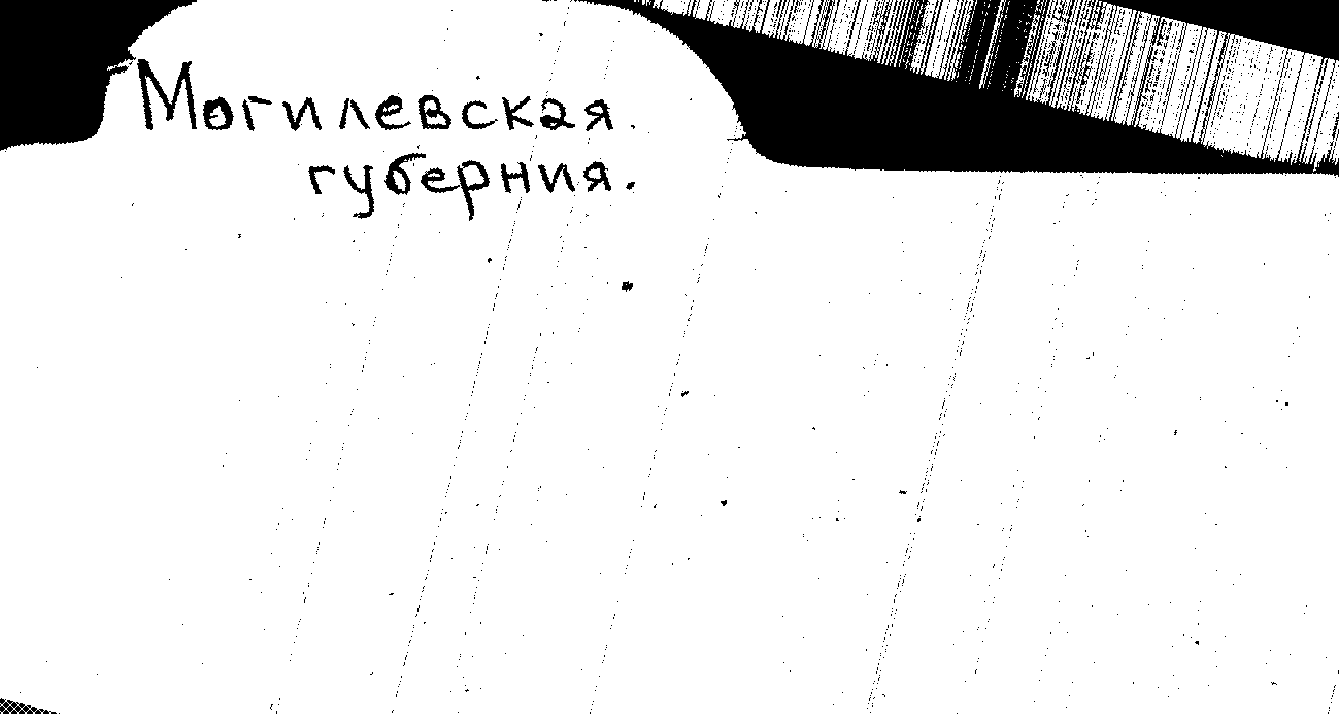 Могилевская
губерния.